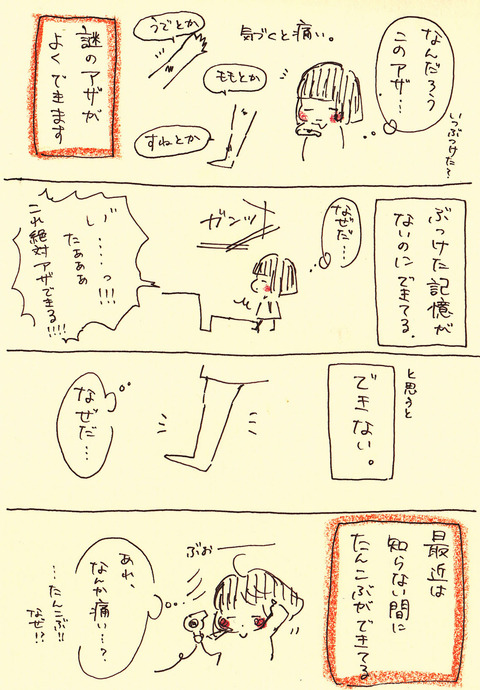 なんだろう
このアザ…
いつぶつけた?
気づくと痛い。
うでとか
ももとか
すねとか
謎のアザが
よくできます
ぶつけた記憶が
ないのにできてる。
なぜだ…
ガンッ
い゛……っ!!!
たぁぁぁ
これ絶対アザできる!!!!
と思うと
できない。
なぜだ…
最近は
知らない間に
たんこぶができてる
ぶお
あれ、
なんか痛い…?
…たんこぶ!!
なぜ!?